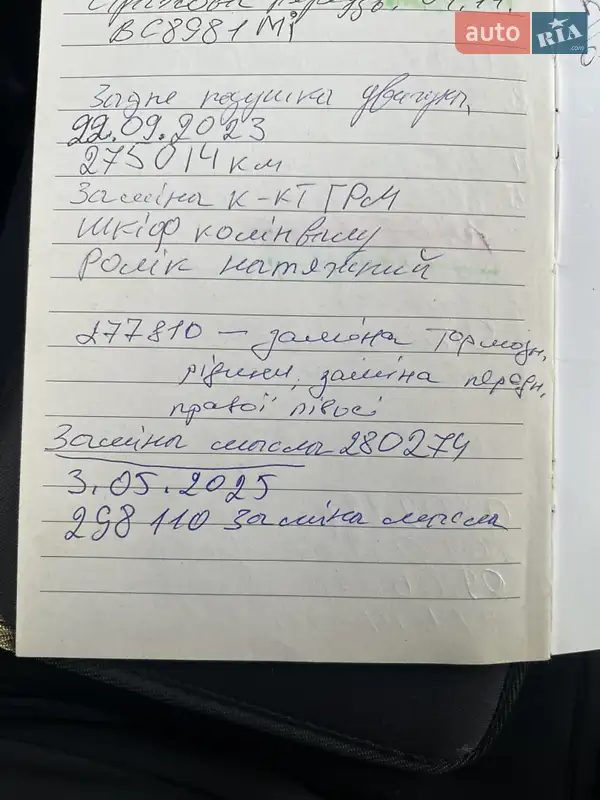 Страхова
ВС8981МІ
auto RIA
Заднє подушка двигуна,
22.09.2023
275014 км
Заміна к-кт ГРМ
шкіф колінвалу
Ролік натяжний
277810 — заміна тормозн,
рідини, заміна передн,
правої півосі
Заміна масла 280274
3.05.2025
298110 Заміна масла